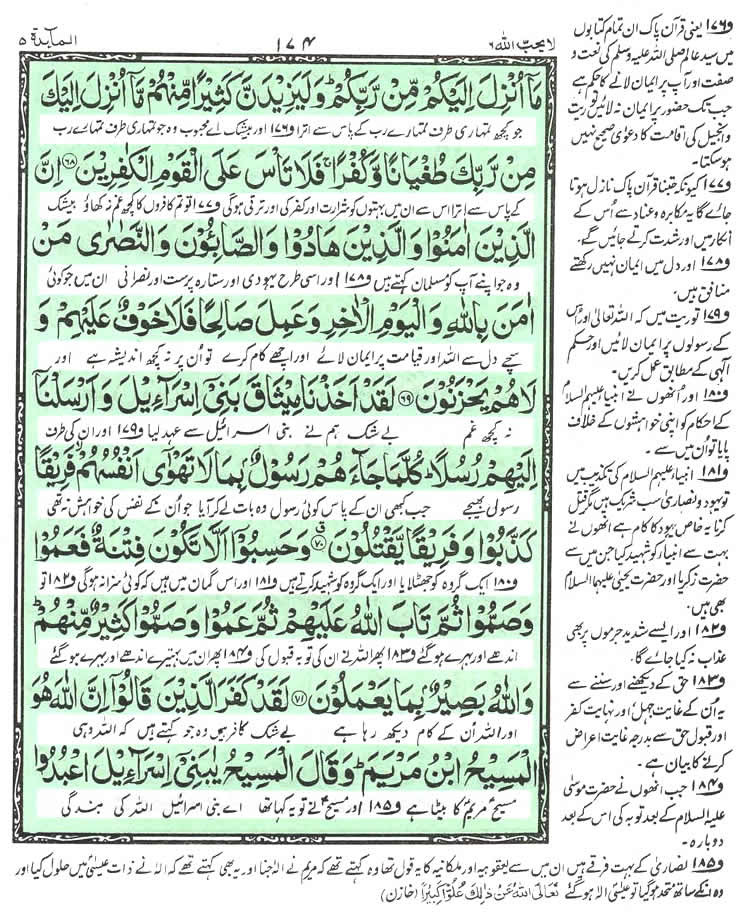 المآىدة ۵
۱۷۴
لا یحب اللہ ۶
مَاۤ اُنْزِلَ اِلَیْكُمْ مِّنْ رَّبِّكُمْؕ وَلَیَزِیْدَنَّ كَثِیْرًا مِّنْهُمْ مَّاۤ اُنْزِلَ اِلَیْكَ
جو کچھ تمہاری طرف تمہارے رب کے پاس سے اترا و۱۷۶ اور بیشک اے محبوب وہ جو تمہاری طرف تمہارے رب
مِنْ رَّبِّكَ طُغْیَانًا وَّكُفْرًاۚ فَلَا تَاْسَ عَلَى الْقَوْمِ الْكٰفِرِیْنَ ﴿۶۸﴾ اِنَّ
کے پاس سے اترا اس سے ان میں بہتوں کو شرارت اور کفر کی اور ترقی ہوگی و۱۷۷ تو تم کافروں کا کچھ غم نہ کھاؤ بیشک
الَّذِیْنَ اٰمَنُوْا وَالَّذِیْنَ هَادُوْا وَالصَّابِـُٔوْنَ وَالنَّصٰرٰى مَنْ
وہ جو اپنے آپ کو مسلمان کہتے ہیں و۱۷۸ اور اسی طرح یہودی اور ستارہ پرست اور نصرانی ان میں جو کوئی
اٰمَنَ بِاللّٰهِ وَالْیَوْمِ الْاٰخِرِ وَعَمِلَ صَالِحًا فَلَا خَوْفٌ عَلَیْهِمْ وَ
سچے دل سے اللہ اور قیامت پر ایمان لائے اور اچھے کام کرے تو ان پر نہ کچھ اندیشہ ہے اور
لَا هُمْ یَحْزَنُوْنَ ﴿۶۹﴾ لَقَدْ اَخَذْنَا مِیْثَاقَ بَنِیْۤ اِسْرَآءِیْلَ وَاَرْسَلْنَاۤ
نہ کچھ غم بے شک ہم نے بنی اسرائیل سے عہد لیا و۱۷۹ اور ان کی طرف
اِلَیْهِمْ رُسُلًاؕ كُلَّمَا جَآءَهُمْ رَسُوْلٌۢ بِمَا لَا تَهْوٰۤى اَنْفُسُهُمْۙ فَرِیْقًا
رسول بھیجے جب کبھی ان کے پاس کوئی رسول وہ بات لے کر آیا جو ان کے نفس کی خواہش نہ تھی
كَذَّبُوْا وَفَرِیْقًا یَّقْتُلُوْنَ ﴿۷۰﴾ وَحَسِبُوْۤا اَلَّا تَكُوْنَ فِتْنَةٌ فَعَمُوْا
و۱۸۰ ایک گروہ کو جھٹلایا اور ایک گروہ کو شہید کرتے ہیں و۱۸۱ اور اس گمان میں ہیں کہ کوئی سزا نہ ہوگی و۱۸۲ تو
وَصَمُّوْا ثُمَّ تَابَ اللّٰهُ عَلَیْهِمْ ثُمَّ عَمُوْا وَصَمُّوْا كَثِیْرٌ مِّنْهُمْؕ
اندھے اور بہرے ہوگئے و۱۸۳ پھر اللہ نے ان کی توبہ قبول کی و۱۸۴ پھر ان میں بہتیرے اندھے اور بہرے ہوگئے
وَاللّٰهُ بَصِیْرٌۢ بِمَا یَعْمَلُوْنَ ﴿۷۱﴾ لَقَدْ كَفَرَ الَّذِیْنَ قَالُوْۤا اِنَّ اللّٰهَ هُوَ
اور اللہ ان کے کام دیکھ رہا ہے بے شک کافر ہیں وہ جو کہتے ہیں کہ اللہ وہی
الْمَسِیْحُ ابْنُ مَرْیَمَؕ وَقَالَ الْمَسِیْحُ یٰبَنِیْۤ اِسْرَآءِیْلَ اعْبُدُوا
مسیح مریم کا بیٹا ہے و۱۸۵ اور مسیح نے تو یہ کہا تھا اے بنی اسرائیل اللہ کی بندگی
و۱۷۶ یعنی قرآن پاک ان تمام کتابوں
میں سید عالم صلی اللہ علیہ وسلم کی نعت و
صفت اور آپ پر ایمان لانے کا حکم ہے
جب تک حضور پر ایمان نہ لائیں توریت
وانجیل کی اقامت کا دعویٰ صحیح نہیں
ہوسکتا۔
و۱۷۷ کیونکہ جتنا قرآن پاک نازل ہوتا
جائے گا یہ مکابرہ و عناد سے اُس کے
انکار میں اور شدت کرتے جائیں گے۔
و۱۷۸ اور دل میں ایمان نہیں رکھتے
منافق ہیں۔
و۱۷۹ توریت میں کہ اللہ تعالیٰ اور اس
کے رسولوں پر ایمان لائیں اور حکم
الٰہی کے مطابق عمل کریں۔
و۱۸۰ اور اُنھوں نے انبیاء علیہم السلام
کے احکام کو اپنی خواہشوں کے خلاف
پایا تو اُن میں سے۔
و۱۸۱ انبیاء علیہم السلام کی تکذیب میں
تو یہود و نصاریٰ سب شریک ہیں مگر قتل
کرنا یہ خاص یہود کا کام ہے انھوں نے
بہت سے انبیاء کو شہید کیا جن میں سے
حضرت زکریا اور حضرت یحییٰ علیہما السلام
بھی ہیں۔
و۱۸۲ اور ایسے شدید جرموں پر بھی
عذاب نہ کیا جائے گا۔
و۱۸۳ حق کے دیکھنے اور سننے سے
یہ اُن کے غایت جہل اور نہایت کفر
اور قبول حق سے بدرجہ غایت اعراض
کرنے کا بیان ہے۔
و۱۸۴ جب انھوں نے حضرت موسیٰ
علیہ السلام کے بعد توبہ کی اس کے بعد
دوبارہ۔
و۱۸۵ نصاریٰ کے بہت فرقے ہیں ان میں سے یعقوبیہ اور ملکانیہ کا یہ قول تھا وہ کہتے تھے کہ مریم نے الٰہ جنا اور یہ بھی کہتے تھے کہ الٰہ نے ذات عیسیٰ میں حلول کیا اور
وہ انکے ساتھ متحد ہوگیا تو عیسیٰ الٰہ ہوگئے تَعَالَی اللّٰهُ عَنْ ذٰلِكَ عُلُوًّا كَبِیْرًا (خازن)